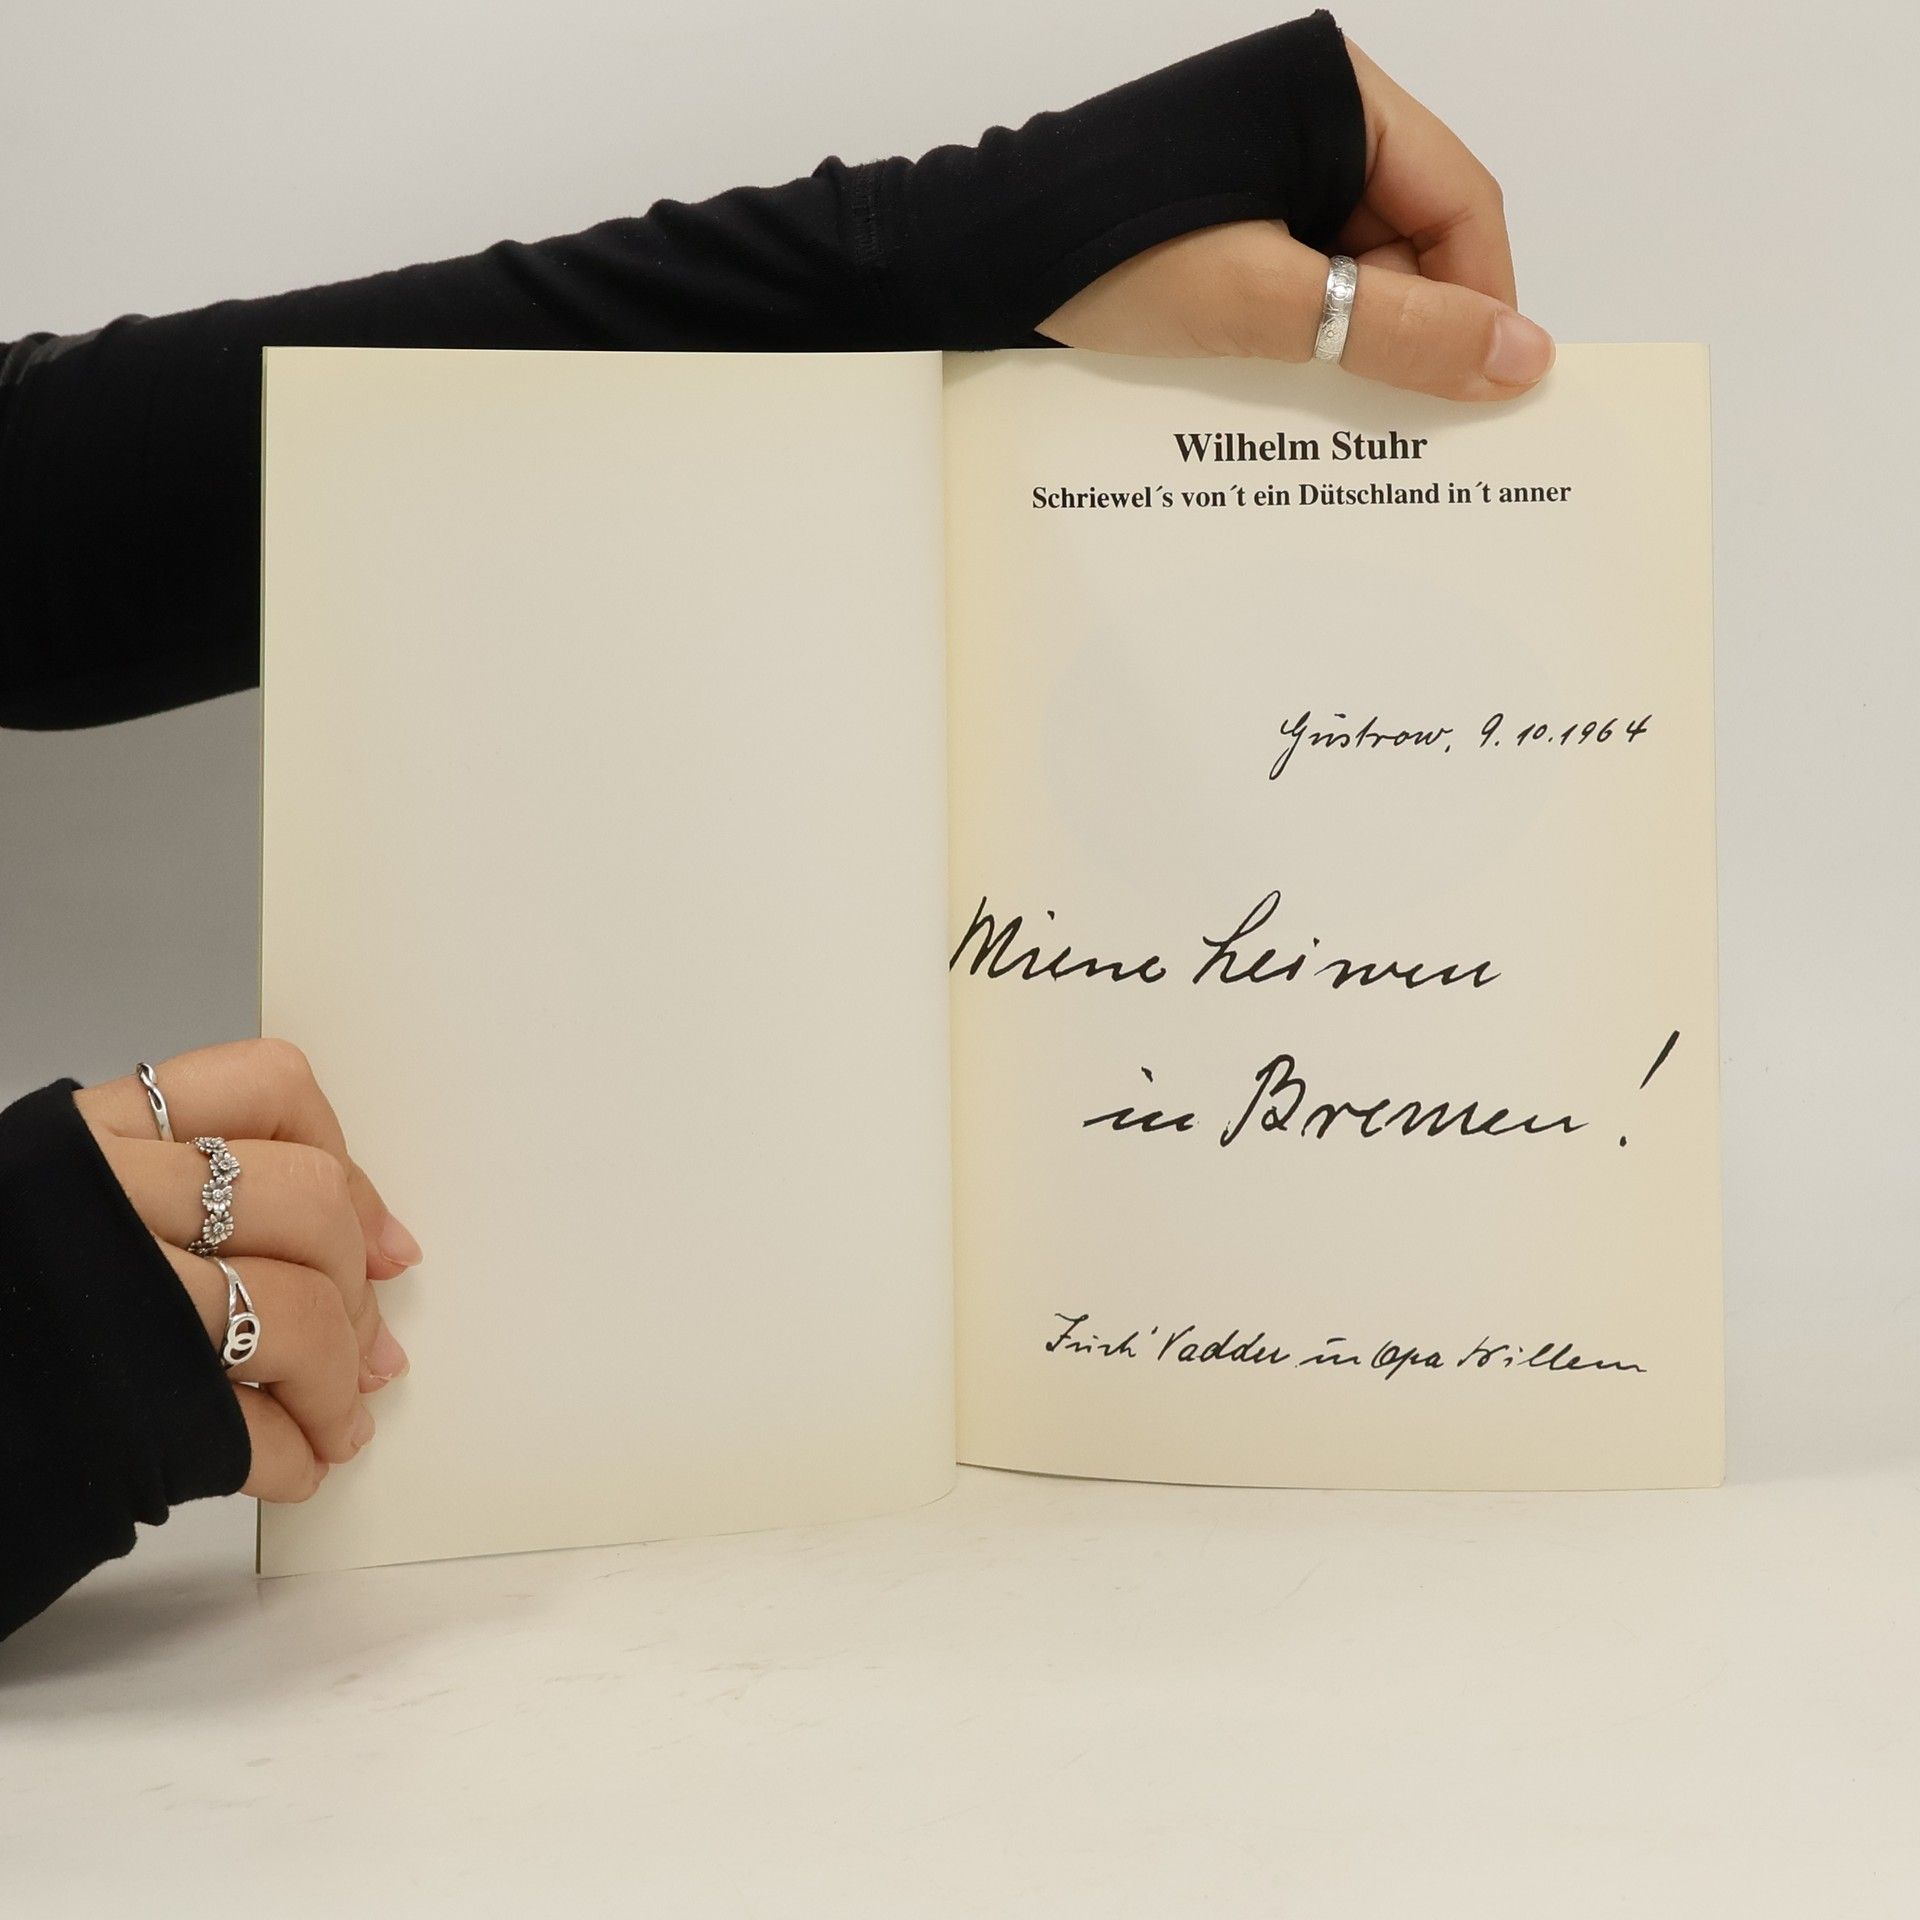 Wilhelm Stuhr
Schriewel´s von´t ein Dütschland in´t anner
Güstrow, 9.10.1964
Miene Leiwen
in Bremen!
Juch' Vadder un Opa Willem